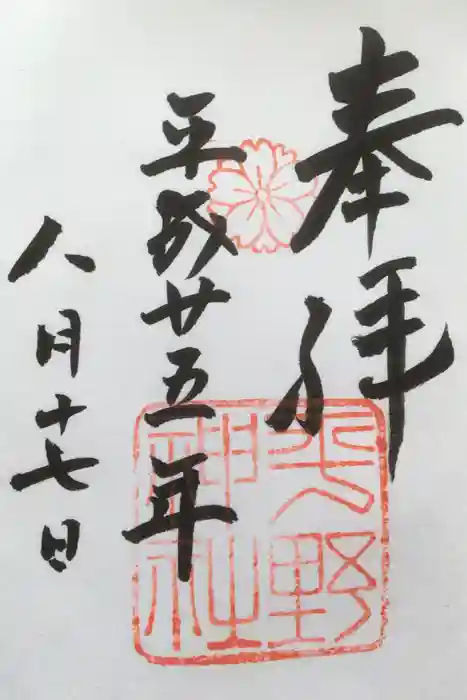 奉拝
平成廿五年
八月十七日
平野
神社